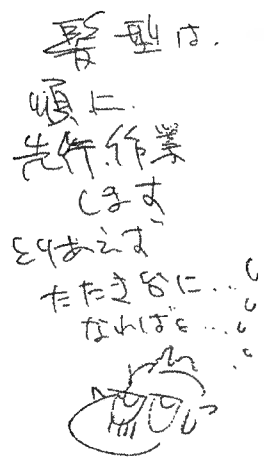 髪型は、
順に、
先行、作業
します
とりあえず
たたき台に…
なればと…